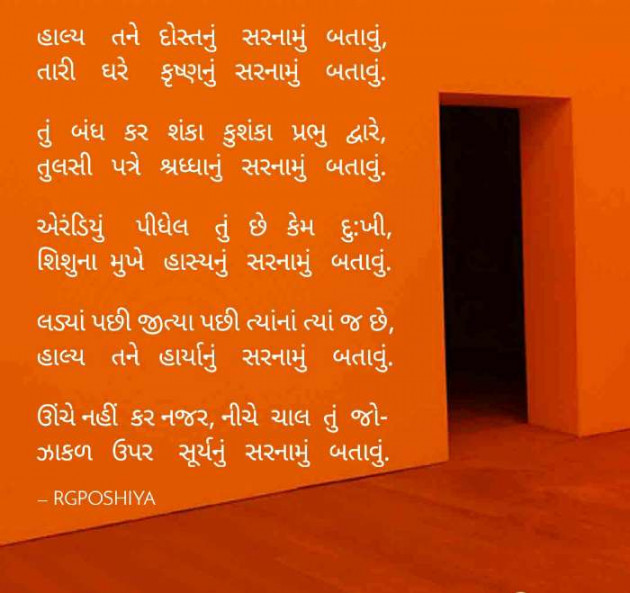 હાલ્ય તને દોસ્તનું સરનામું બતાવું,
તારી ઘરે કૃષ્ણનું સરનામું બતાવું.
તું બંધ કર શંકા કુશંકા પ્રભુ દ્વારે,
તુલસી પત્રે શ્રધ્ધાનું સરનામું બતાવું.
એરંડિયું પીધેલ તું છે કેમ દુ:ખી,
શિશુના મુખે હાસ્યનું સરનામું બતાવું.
લડ્યાં પછી જીત્યા પછી ત્યાંનાં ત્યાં જ છે,
હાલ્ય તને હાર્યાનું સરનામું બતાવું.
ઊંચે નહીં કર નજર, નીચે ચાલ તું જો-
ઝાકળ ઉપર સૂર્યનું સરનામું બતાવું.
– RGPOSHIYA